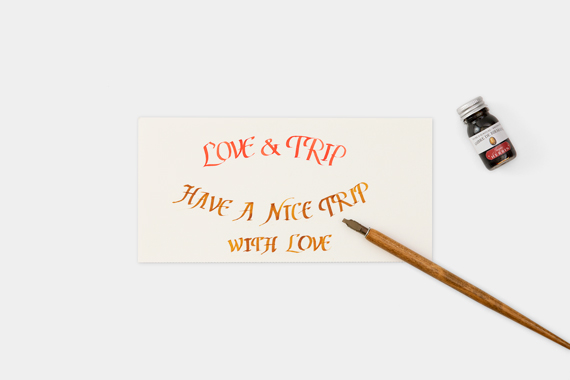 LOVE & TRIP
HAVE A NICE TRIP
WITH LOVE